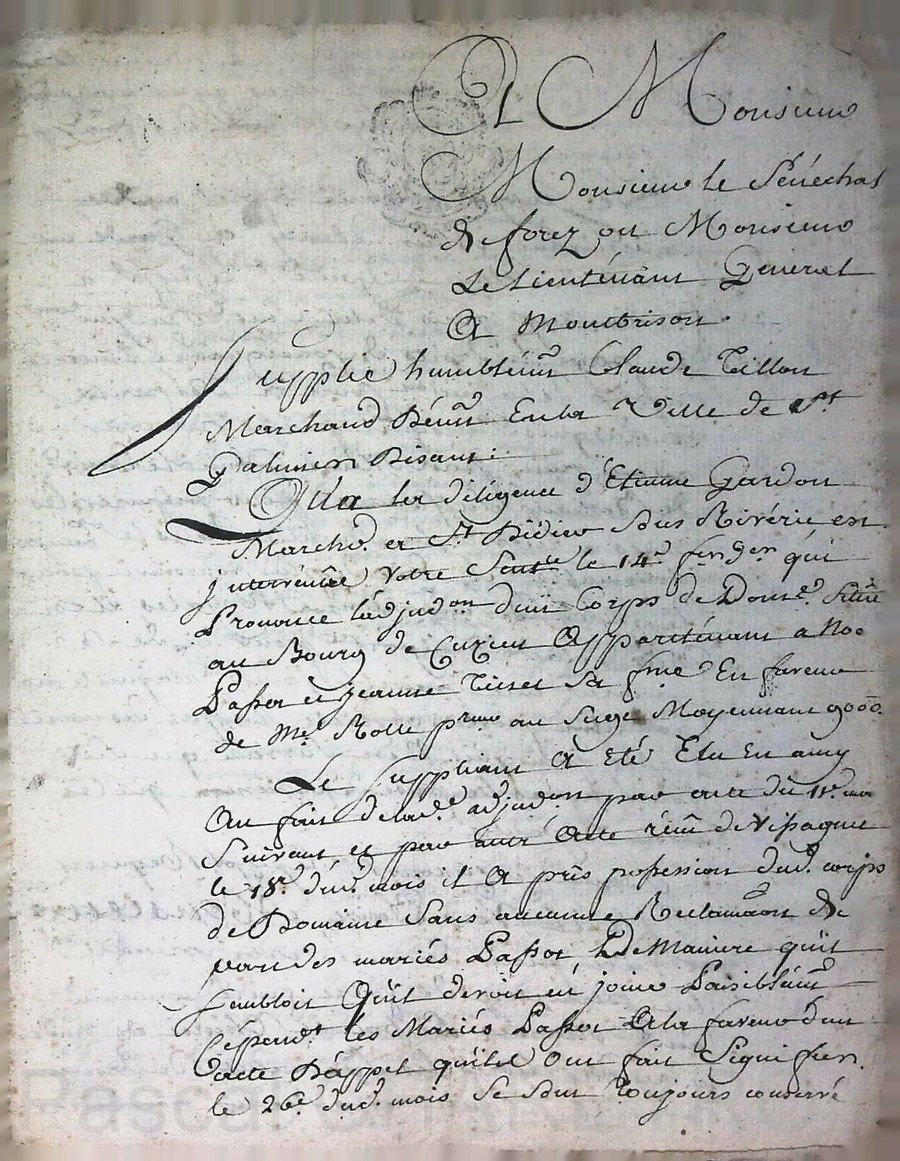 A Monsieur
Monsieur le Sénéchal
de forez ou Monsieur
Le Lieuténant Géneral
A Montbrison.
Supplie humblém.t Claude Tillon
Marchand Démt En la Ville de St
Galmier Disant:
Qu'a la diligence d'Etienne Gardon
March.d et St Didier sous Rivérie est
intervenüe Votre Sentce le 14.e qui
Prononce l'adjudon d'un Corps de Dom.e Situé
au Bourg de Cuzieu Appartténant a Noe
Passot et Jeanne sa fme En faveur
de Me. Rolle pr au Siege Moyennant 9000.
Le Suppliant A Eté Elu En amy
Au fait de lad.e adjudon par acte du 11.e
Suivant et par autré Acte réçu de Vissaguet
le 18.e dud. mois il A pris possession dud. corps
de Domaine Sans aucunne Reclamaon de
part des mariés Passot De Maniere qu'il
sembloit Qu'il devoit en joüir Paisiblémt
Cépend.t les Mariés Passot A la faveur d'un
acte D'appel qu'ils Ont fait Signiffier
le 26.e dud. mois Se sont Toujours conservé